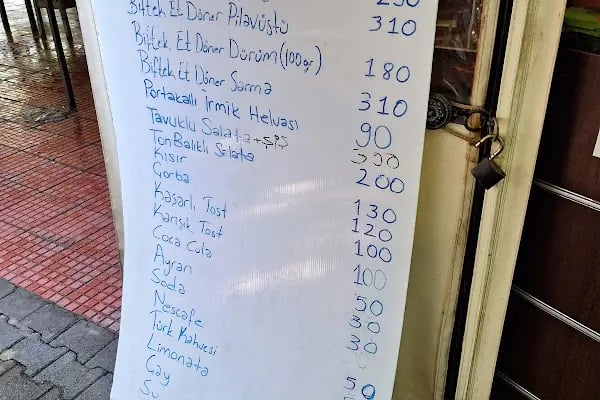 Biftek Et Döner Pilavüstü 310
Biftek Et Döner Dürüm (100gr) 180
Biftek Et Döner Sarma 310
Portakallı İrmik Helvası 90
Tavuklu Salata
Ton Balıklı Salata 200
Kısır 130
Çorba 120
Kaşarlı Tost 100
Karışık Tost 100
Coca Cola 50
Ayran 30
Soda 30
Nescafe
Türk Kahvesi 50
Limonata
Çay
Su